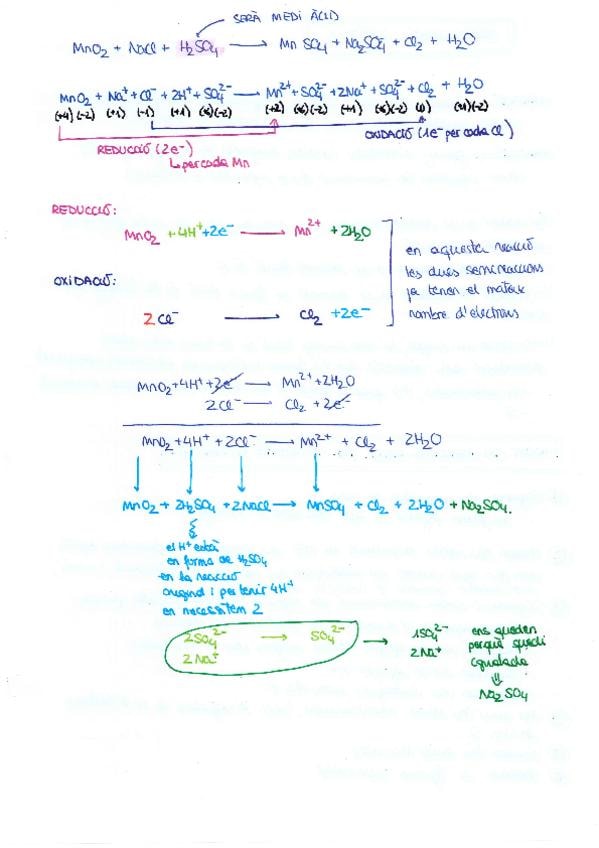 SERÀ MEDI ÀCID
MnO2 + NaCl + H2SO4 → MnSO4 + Na2SO4 + Cl2 + H2O
MnO2 + Na+ + Cl- + 2H+ + SO4^2- → Mn^2+ + SO4^2- + 2Na+ + SO4^2- + Cl2 + H2O
(+4)(-2) (+1) (-1) (+1) (+6)(-2) (+2) (+6)(-2) (+1) (+6)(-2) (0) (+1)(-2)
REDUCCIÓ (2e-)
OXIDACIÓ (1e- per cada Cl)
↳ per cada Mn
REDUCCIÓ:
MnO2 + 4H+ + 2e- → Mn^2+ + 2H2O
OXIDACIÓ:
2Cl- → Cl2 + 2e-
en aquesta reacció
les dues semireaccions
ja tenen el mateix
nombre d'electrons
MnO2 + 4H+ + 2e- → Mn^2+ + 2H2O
2Cl- → Cl2 + 2e-
MnO2 + 4H+ + 2Cl- → Mn^2+ + Cl2 + 2H2O
MnO2 + 2H2SO4 + 2NaCl → MnSO4 + Cl2 + 2H2O + Na2SO4.
el H+ està
en forma de H2SO4
en la reacció
original i per tenir 4H+
en necessitem 2
2SO4^2- → SO4^2-
2Na+
→ 1SO4^2-
2Na+
ens queden
perquè quedi
igualada
⇓
Na2SO4